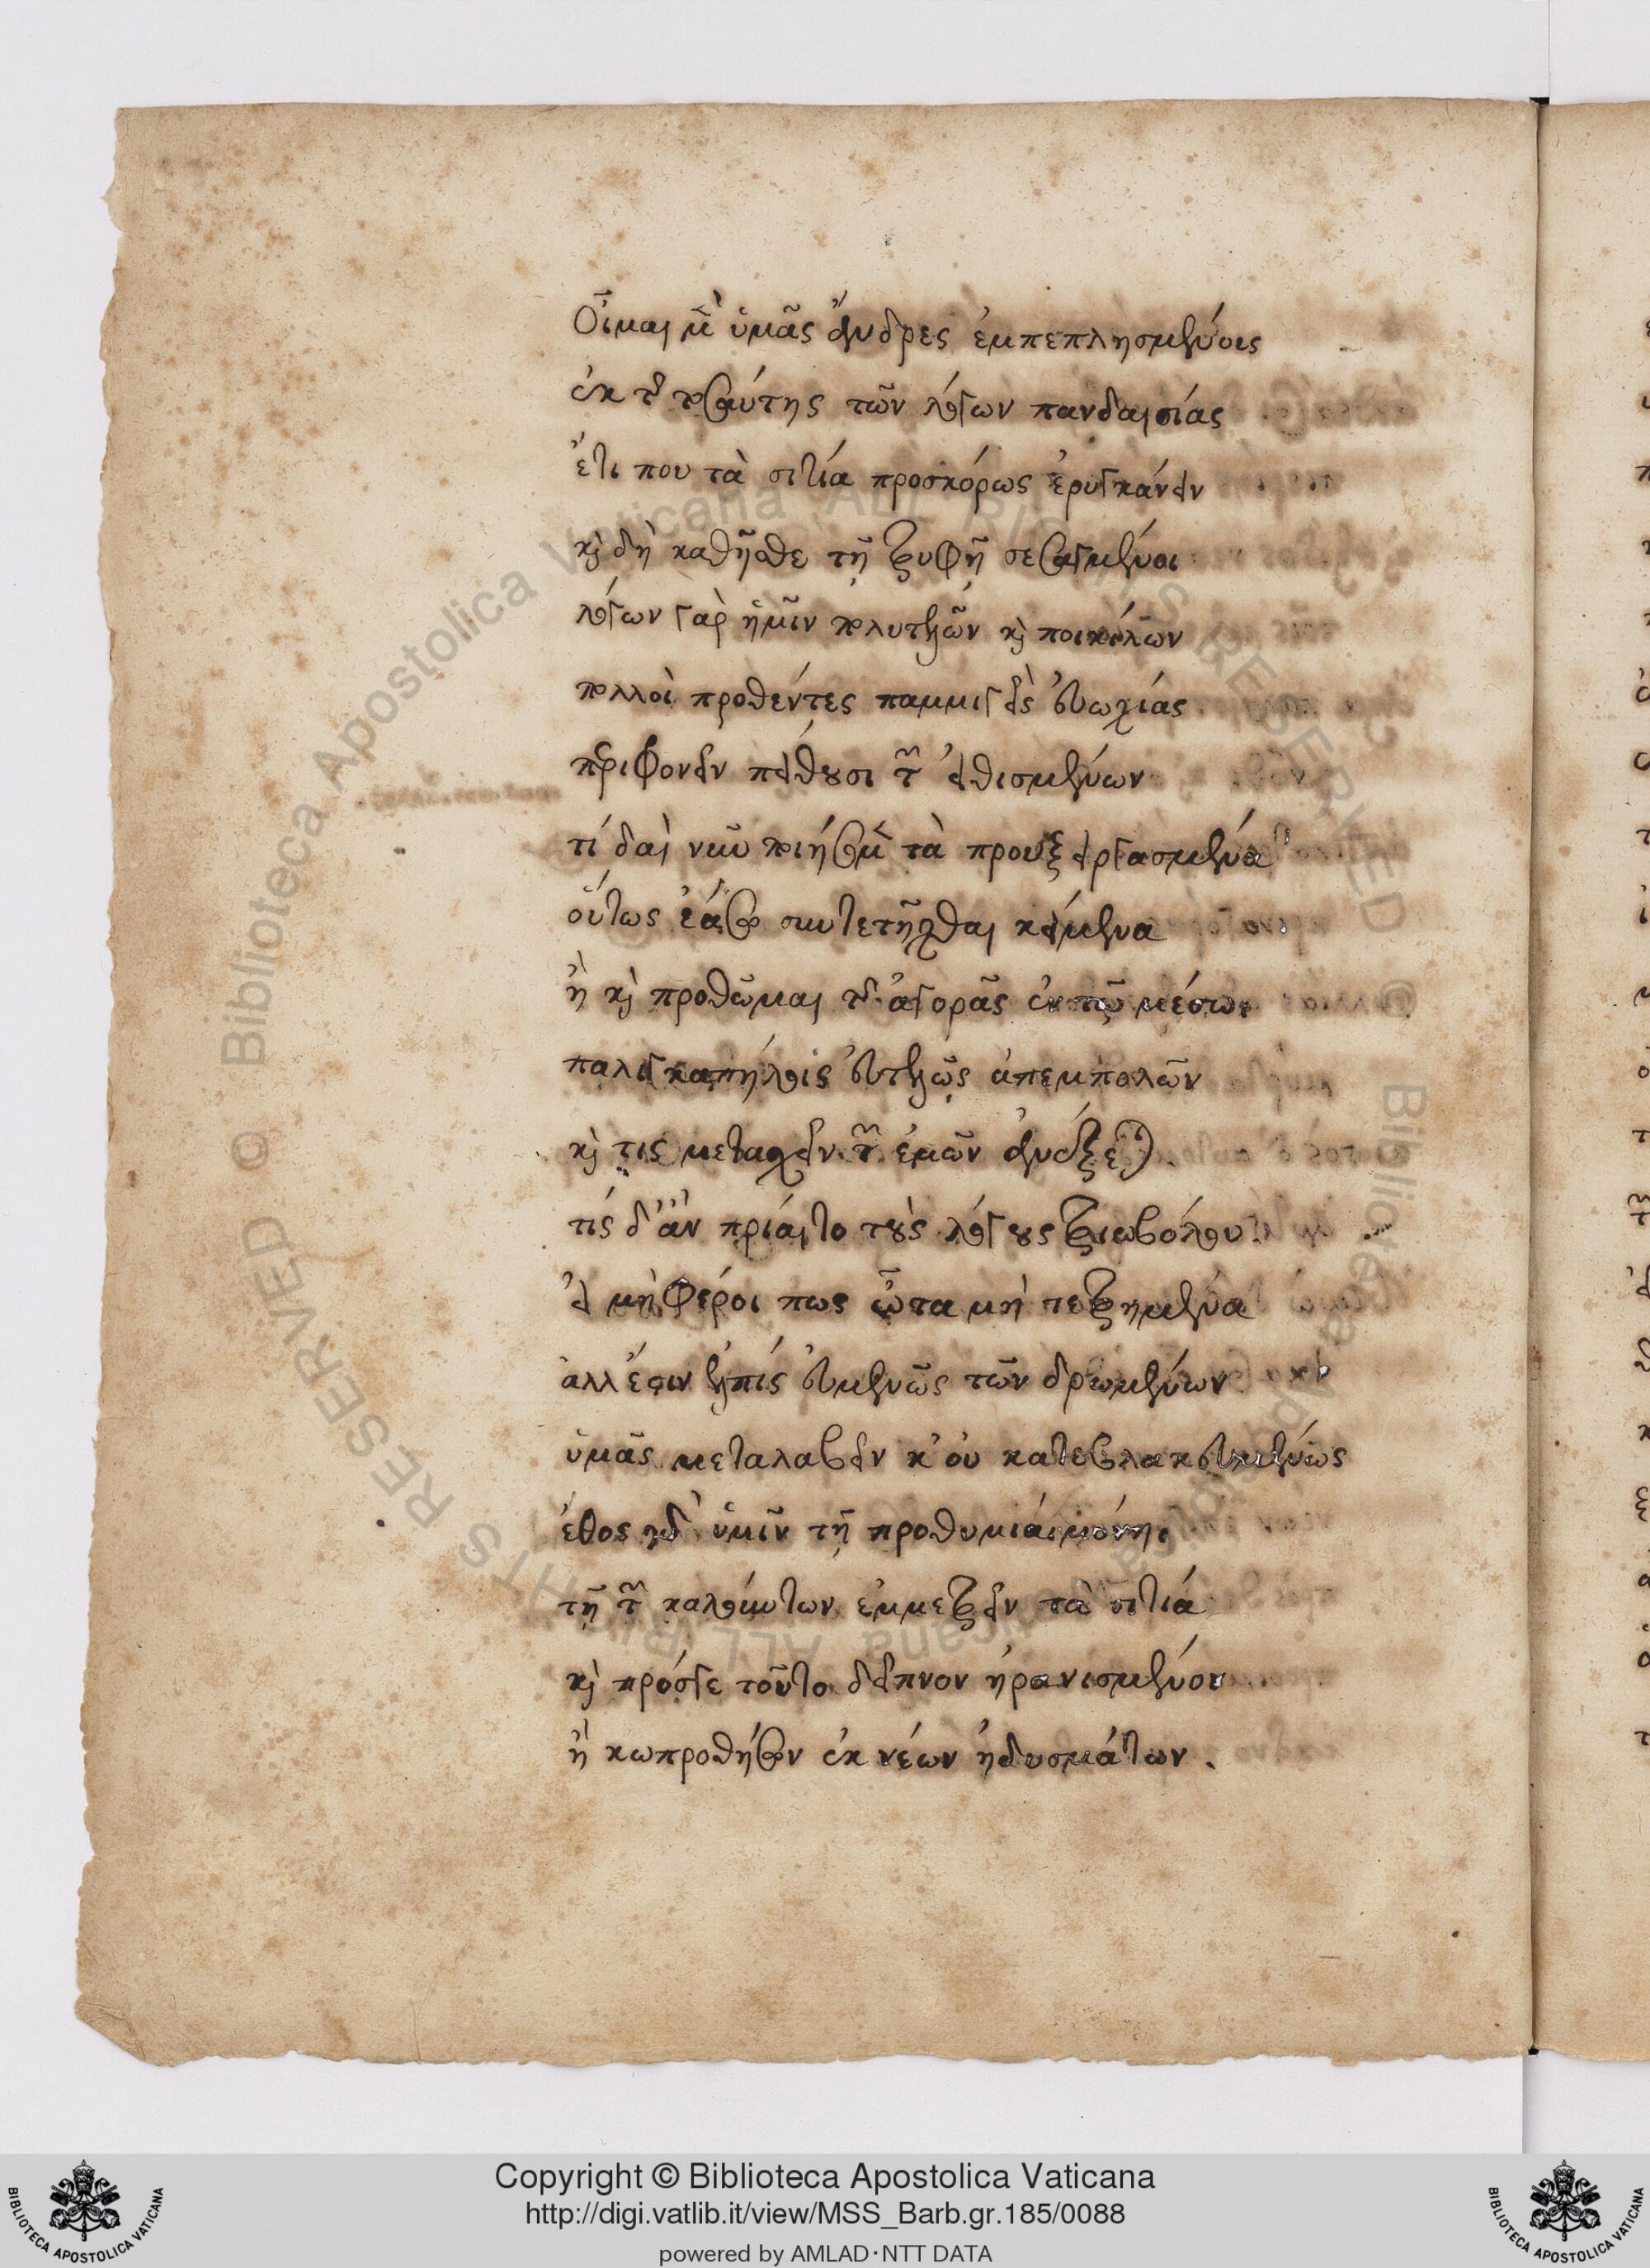 Οἶμαι μὲν ὑμᾶς ἄνδρες ἐμπεπλησμένους
ἐκ τῆς τοσαύτης τῶν λόγων πανδαισίας
ἔτι που τὰ σιτία προσκόρως ἐρυγκάνειν
καὶ δὴ καθῆσθε τῇ τρυφῇ σεσαγμένοι
λόγων γὰρ ἡμῖν πολυτελῶν καὶ ποικίλων
πολλοὶ προθέντες παμμιγεῖς εὐωχίας
τρυφᾶν πείθουσι τῶν εἰθισμένων
τί δαὶ νῦν ποιήσομεν τὰ προυξειργασμένα
οὕτως ἐάσω συντετῆχθαι κείμενα
ἢ καὶ προθῶμαι τῆς ἀγορᾶς ἐκ τῷ μέσῳ
παλιγκαπήλοις εὐτελῶς ἀπεμπολῶν
καὶ τις μετασχεῖν τῶν ἐμῶν ἀνέξεται
τίς δ' ἂν πρίαιτο τοὺς λόγους τριωβόλου
εἰ μὴ φέροι πως ὦτα μὴ τετρημένα
ἀλλ' ἔστιν ἐλπίς εὐμενῶς τῶν δρωμένων
ὑμᾶς μεταλαβεῖν κ' οὐ κατεβλακευμένως
ἔθος γὰρ ὑμῖν τῇ προθυμίᾳ μόνῃ
τῇ τῶν καλούντων ἐμμετρεῖν τὰ σιτία
καὶ πρόσγε τοῦτο δεῖπνον ἠρανισμένοι
ἢ κωπροθήσων ἐκ νέων ἡδυσμάτων.
Copyright © Biblioteca Apostolica Vaticana
http://digi.vatlib.it/view/MSS_Barb.gr.185/0088
powered by AMLAD·NTT DATA
BIBLIOTECA APOSTOLICA VATICANA
BIBLIOTECA APOSTOLICA VATICANA